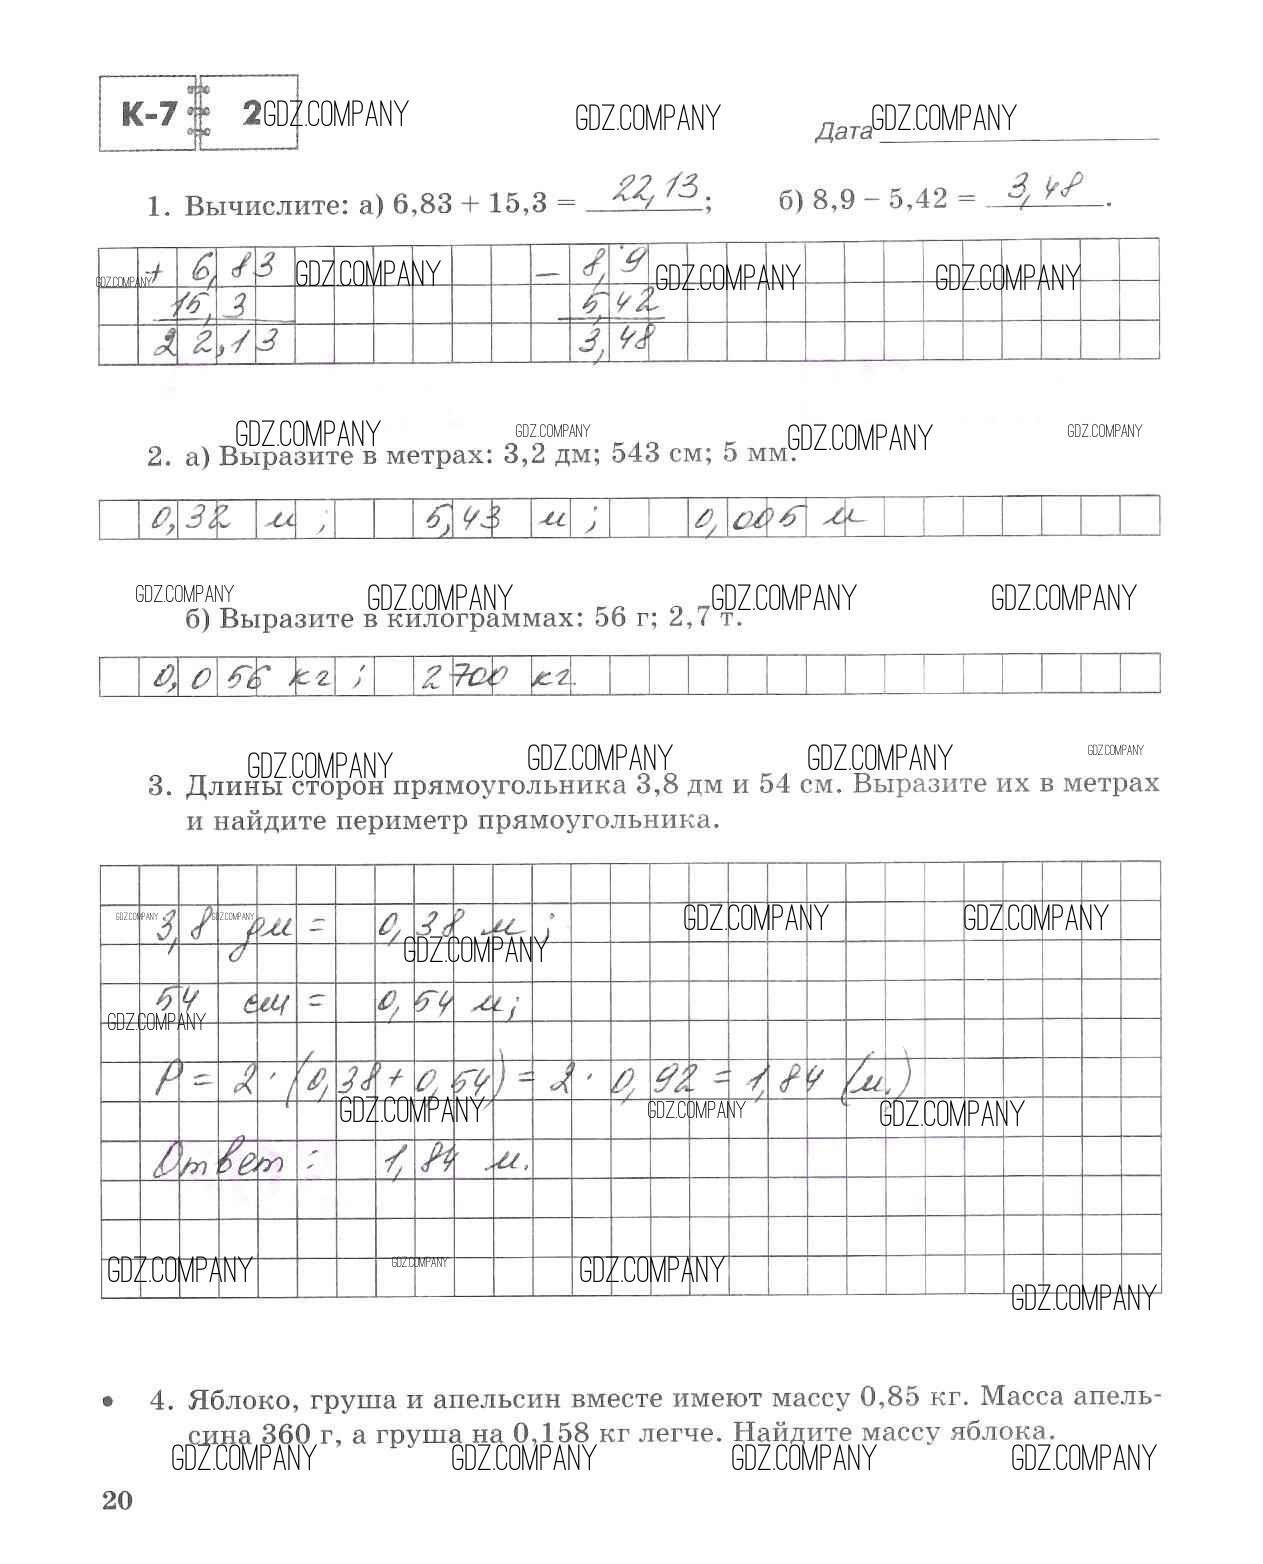 К-7 2 GDZ.COMPANY GDZ.COMPANY GDZ.COMPANY
Дата
1. Вычислите: а) 6,83 + 15,3 = 22,13; б) 8,9 − 5,42 = 3,48.
+ 6,83 GDZ.COMPANY − 8,9 GDZ.COMPANY GDZ.COMPANY
GDZ.COMPANY
15,3 5,42
22,13 3,48
GDZ.COMPANY GDZ.COMPANY GDZ.COMPANY GDZ.COMPANY
2. а) Выразите в метрах: 3,2 дм; 543 см; 5 мм.
0,32 м; 5,43 м; 0,005 м
GDZ.COMPANY GDZ.COMPANY GDZ.COMPANY GDZ.COMPANY
б) Выразите в килограммах: 56 г; 2,7 т.
0,056 кг; 2700 кг.
GDZ.COMPANY GDZ.COMPANY GDZ.COMPANY GDZ.COMPANY
3. Длины сторон прямоугольника 3,8 дм и 54 см. Выразите их в метрах
и найдите периметр прямоугольника.
GDZ.COMPANY GDZ.COMPANY GDZ.COMPANY GDZ.COMPANY
3,8 дм = 0,38 м;
GDZ.COMPANY
54 см = 0,54 м;
GDZ.COMPANY
P = 2 · (0,38 + 0,54) = 2 · 0,92 = 1,84 (м.)
GDZ.COMPANY GDZ.COMPANY GDZ.COMPANY
Ответ: 1,84 м.
GDZ.COMPANY GDZ.COMPANY GDZ.COMPANY
GDZ.COMPANY
• 4. Яблоко, груша и апельсин вместе имеют массу 0,85 кг. Масса апель-
сина 360 г, а груша на 0,158 кг легче. Найдите массу яблока.
GDZ.COMPANY GDZ.COMPANY GDZ.COMPANY GDZ.COMPANY
20